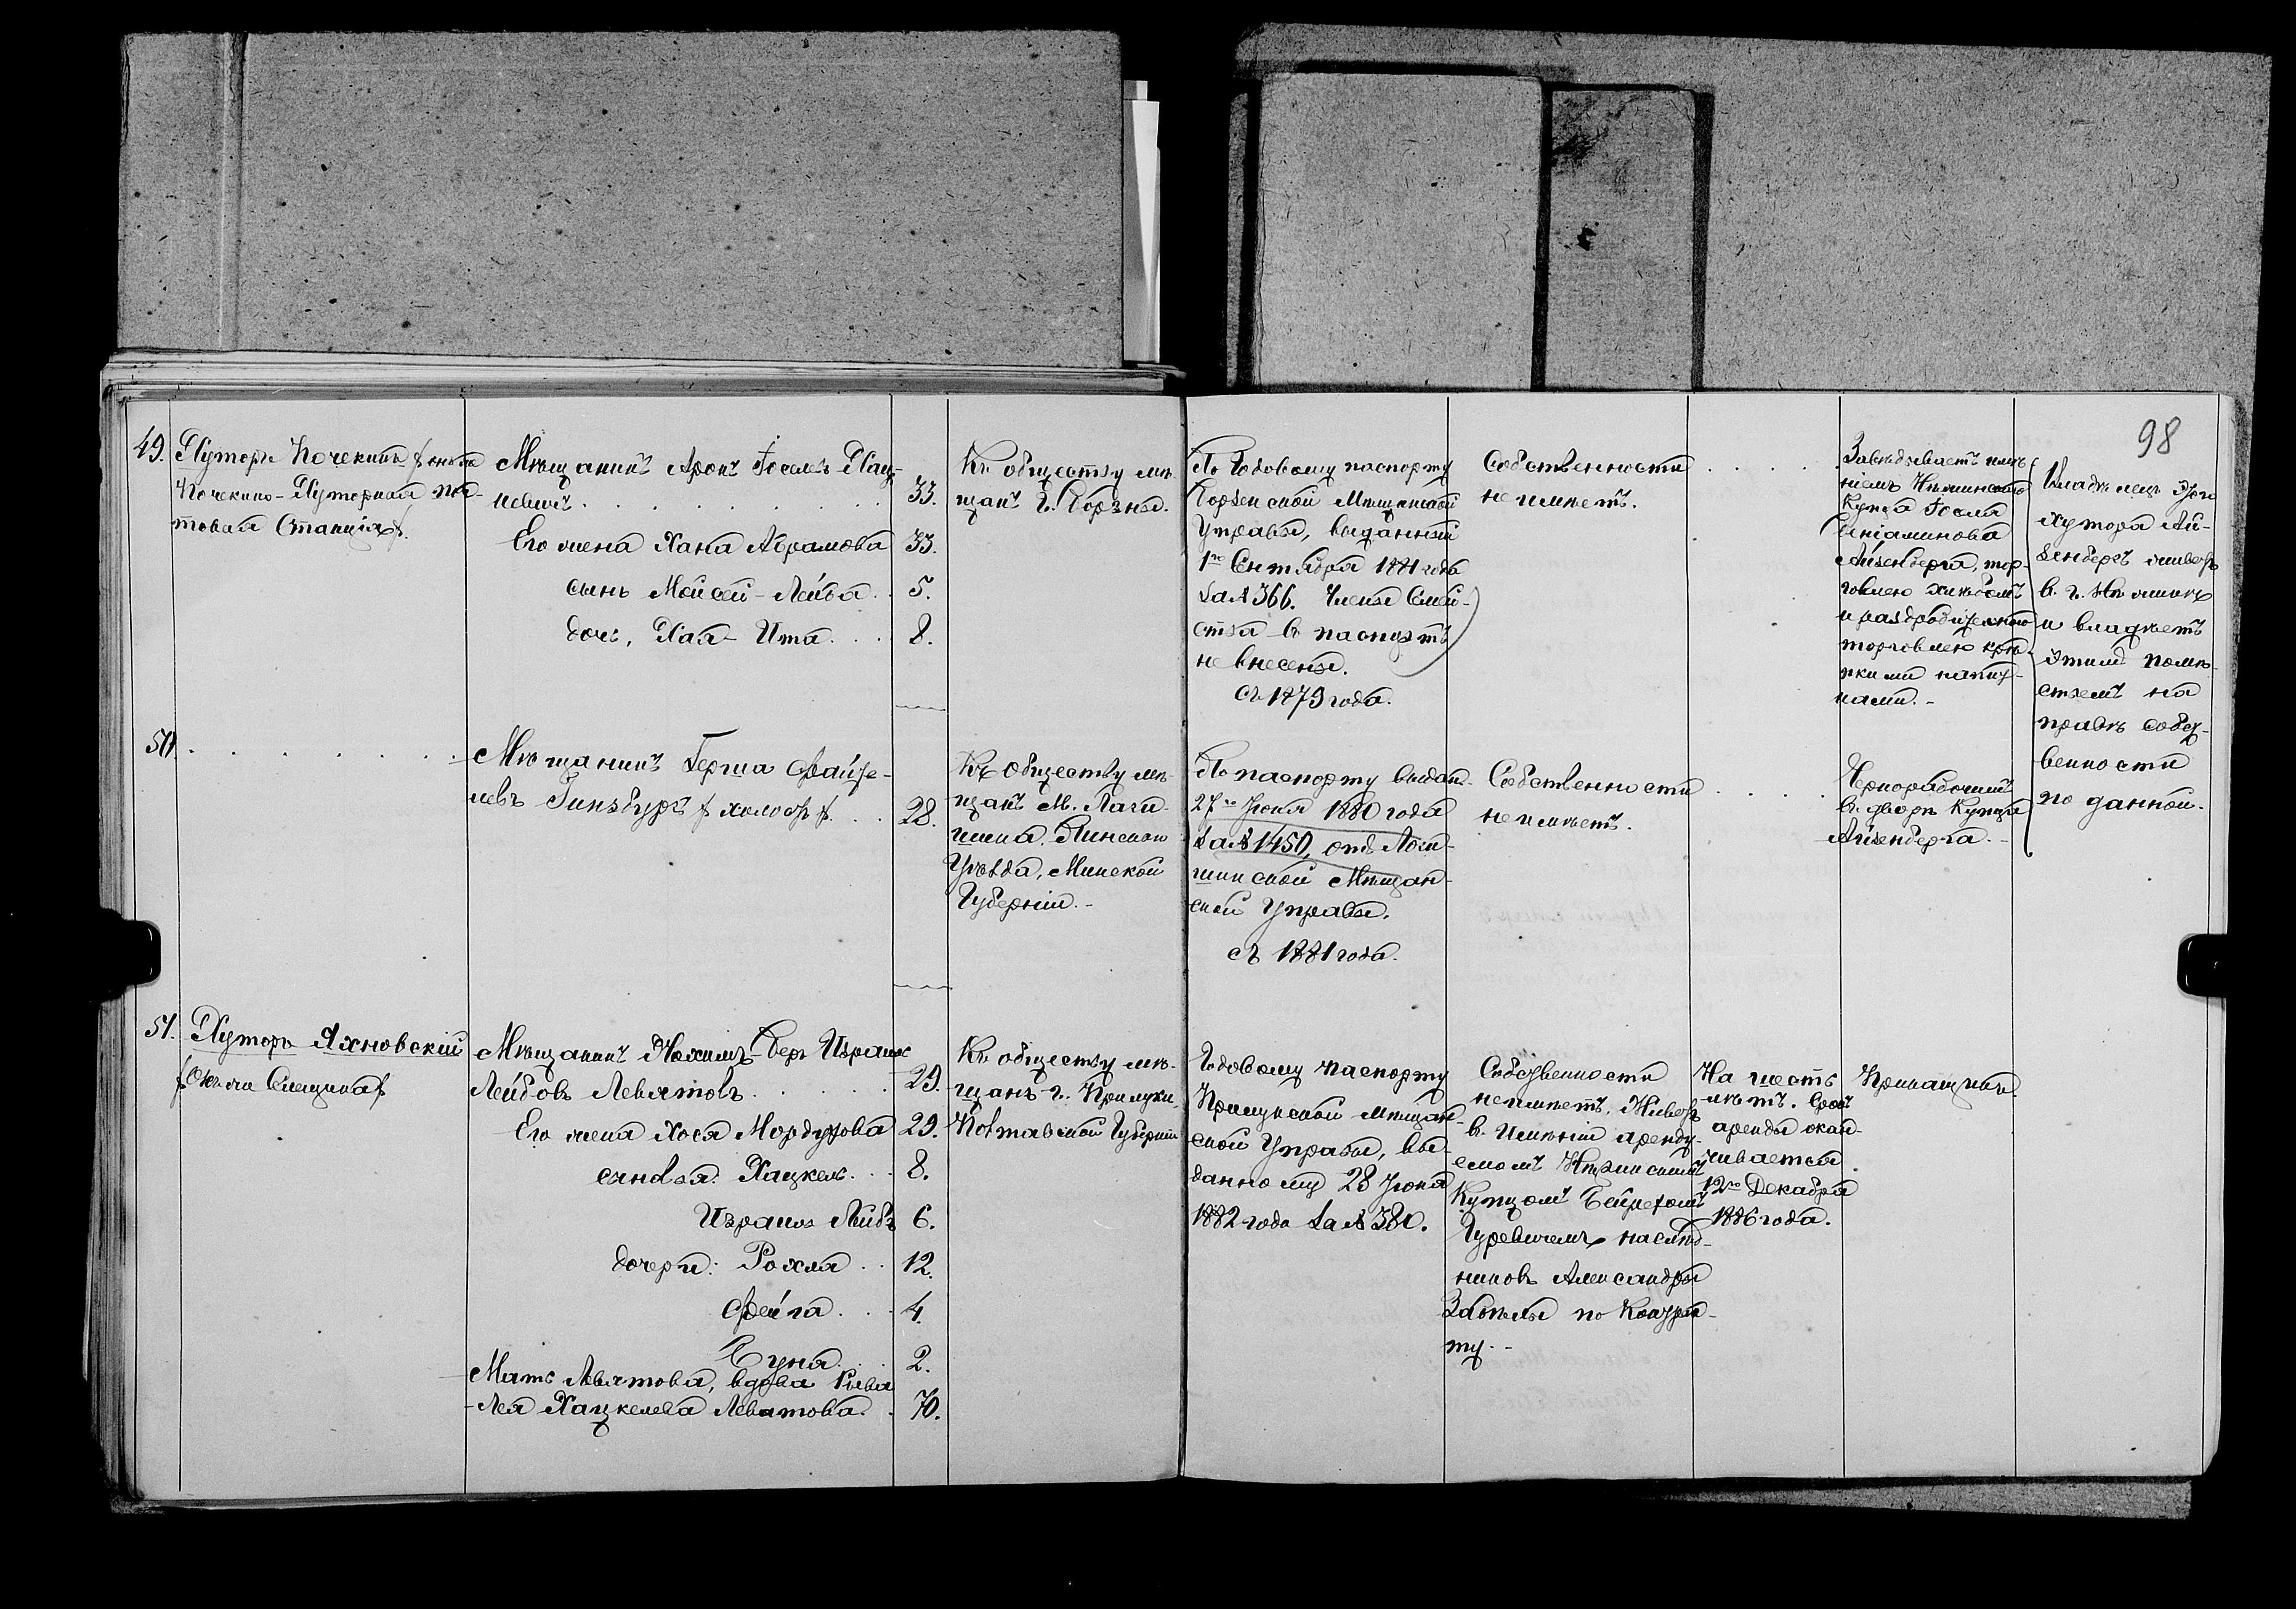 98
49.
Хуторъ Почекинъ
Почекино-Хуторная поч-
товая Станція
Мѣщанинъ Аронъ Іоселевъ Хац-
келевичъ 33.
Его жена Хана Абрамова 33.
сынъ Мойсей-Лейба 5.
дочь, Хая-Ита 8.
Къ обществу мѣ-
щанъ г. Борзны.
По Годовому паспорту
Борзенской Мѣщанской
Управы, выданный
1го Сентября 1881 года
за № 366. Члены Семей-
ства въ паспортъ
не внесены.
съ 1879 года.
Собственности
не имѣетъ.
Завѣдываетъ имѣ-
ніемъ Нѣжинскаго
Купца Іосля
Веніаминова
Айзенберга, тор-
говлею хлѣбомъ
и раздробительною
торговлею крѣ-
пкими напит-
ками.-
Владѣлецъ этого
хутора Ай-
зенбергъ живетъ
въ г. Нѣжинѣ
и владѣетъ
этимъ помѣ-
стьемъ на
правѣ собст-
венности
по данной.
50.
Мѣщанинъ Герша Файте-
левъ Гинзбургъ холостъ 28.
Къ обществу мѣ-
щанъ М. Логи-
шина Пинскаго
Уѣзда, Минской
Губерніи.-
По паспорту выдан.
27го Іюня 1880 года
за № 1450, отъ Логи-
шинской Мѣщан-
ской Управы.
съ 1881 года.
Собственности
не имѣетъ.
Чернорабочій
въ дворѣ Купца
Айзенберга.-
51.
Хуторъ Яхновскій
Мѣщанинъ Нохимъ-Беръ Израиль
Лейбовъ Левятовъ 29.
Его жена Хося Мордухова 29.
сыновья: Хацкель 8.
Израиль Лейбъ 6.
дочери: Рохля 12.
Фейга 4.
2.
Мать Левятова, вдова Рива
-Лея Хацкелева Левятова 70.
Къ обществу мѣ-
щанъ г. Прилуки,
Полтавской Губерніи
Годовому паспорту
Прилукской мѣщан-
ской Управы, вы-
данному 28 Іюня
1882 года за № 380.
Собственности
не имѣетъ. Живетъ
въ Имѣніи аренду-
емомъ Нѣжинскимъ
Купцомъ
Гуревичемъ наслѣд-
никовъ Александры
Забѣлы по Контрак-
ту.-
На шесть
лѣтъ. Срокъ
аренды окан-
чивается
12го Декабря
1886 года.
Прикащикъ